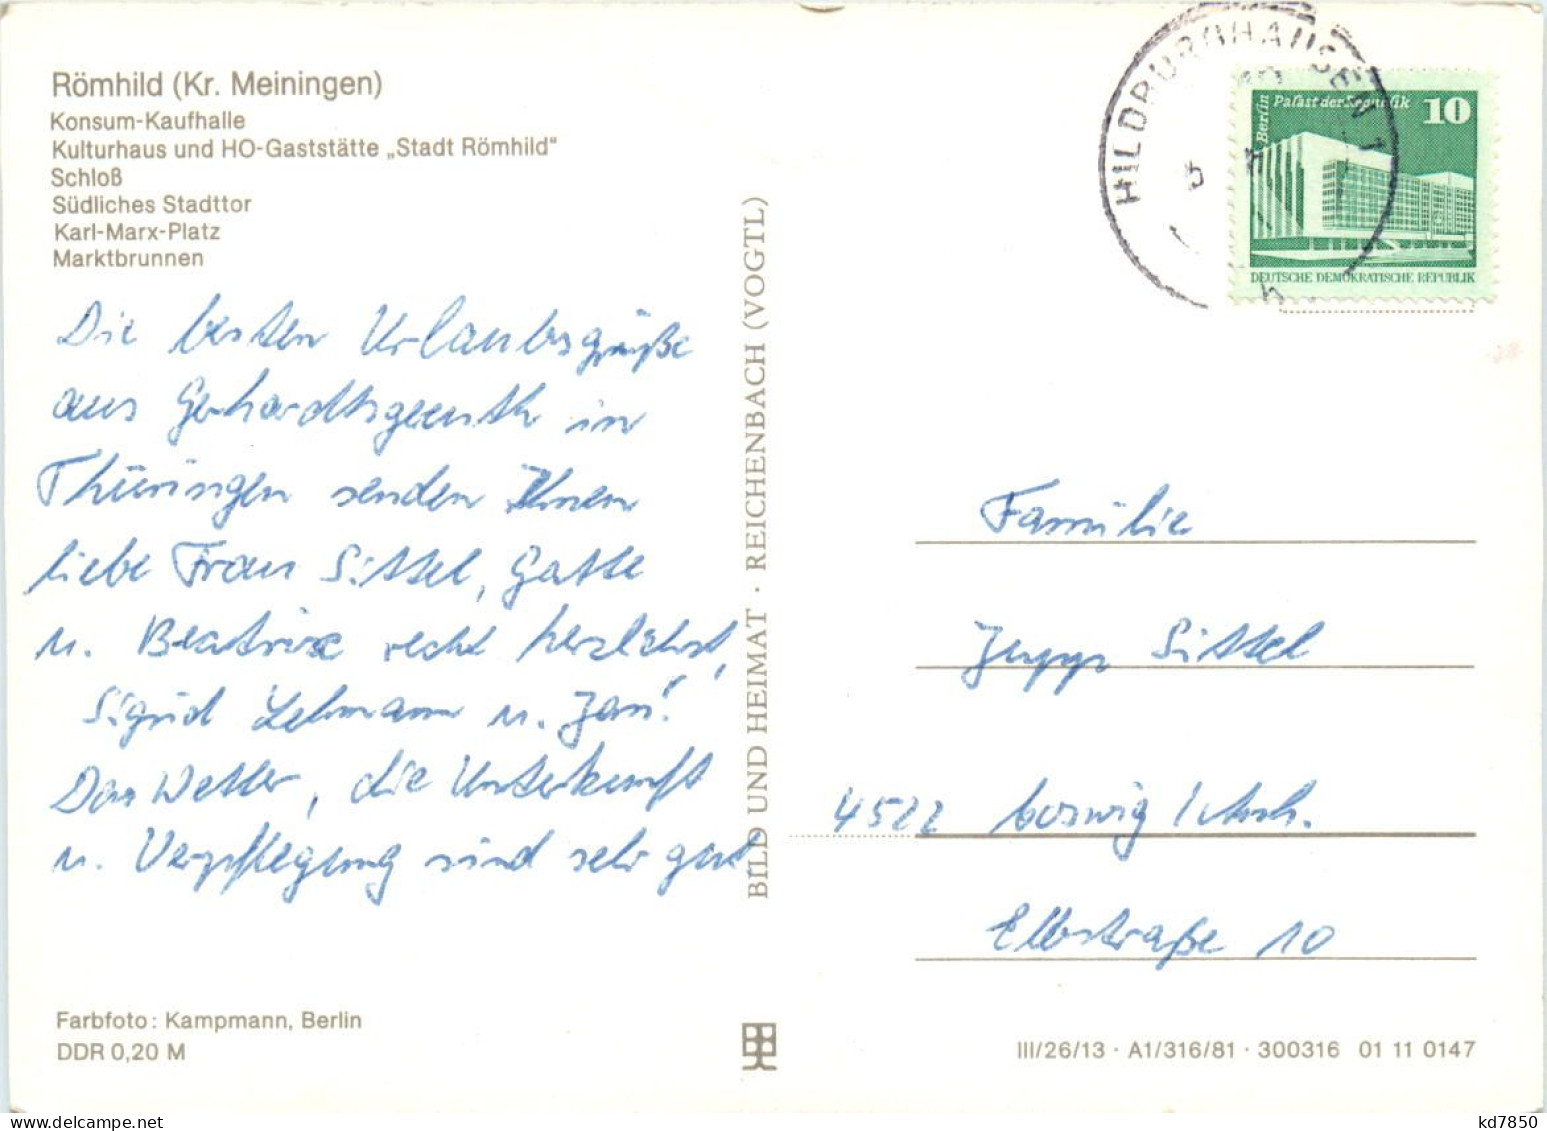 Römhild (Kr. Meiningen)
Konsum-Kaufhalle
Kulturhaus und HO-Gaststätte „Stadt Römhild"
Schloß
Südliches Stadttor
Karl-Marx-Platz
Marktbrunnen
Die besten Urlaubsgrüße
aus Gerhardtsgereuth in
Thüringen senden Ihnen
liebe Frau Sittel, Gatte
u. Beatrixe recht herzlichst,
Sigrid Lehmann u. Jan!
Das Wetter, die Unterkunft
u. Verpflegung sind sehr gut
Farbfoto: Kampmann, Berlin
DDR 0,20 M
BILD UND HEIMAT · REICHENBACH (VOGTL)
HILDBURGHAUSEN 1
Berlin Palast der Republik 10
DEUTSCHE DEMOKRATISCHE REPUBLIK
Familie
Jupp Sittel
4522 Coswig / Anh.
Elbstraße 10
III/26/13 · A1/316/81 · 300316 01 11 0147
kd7850